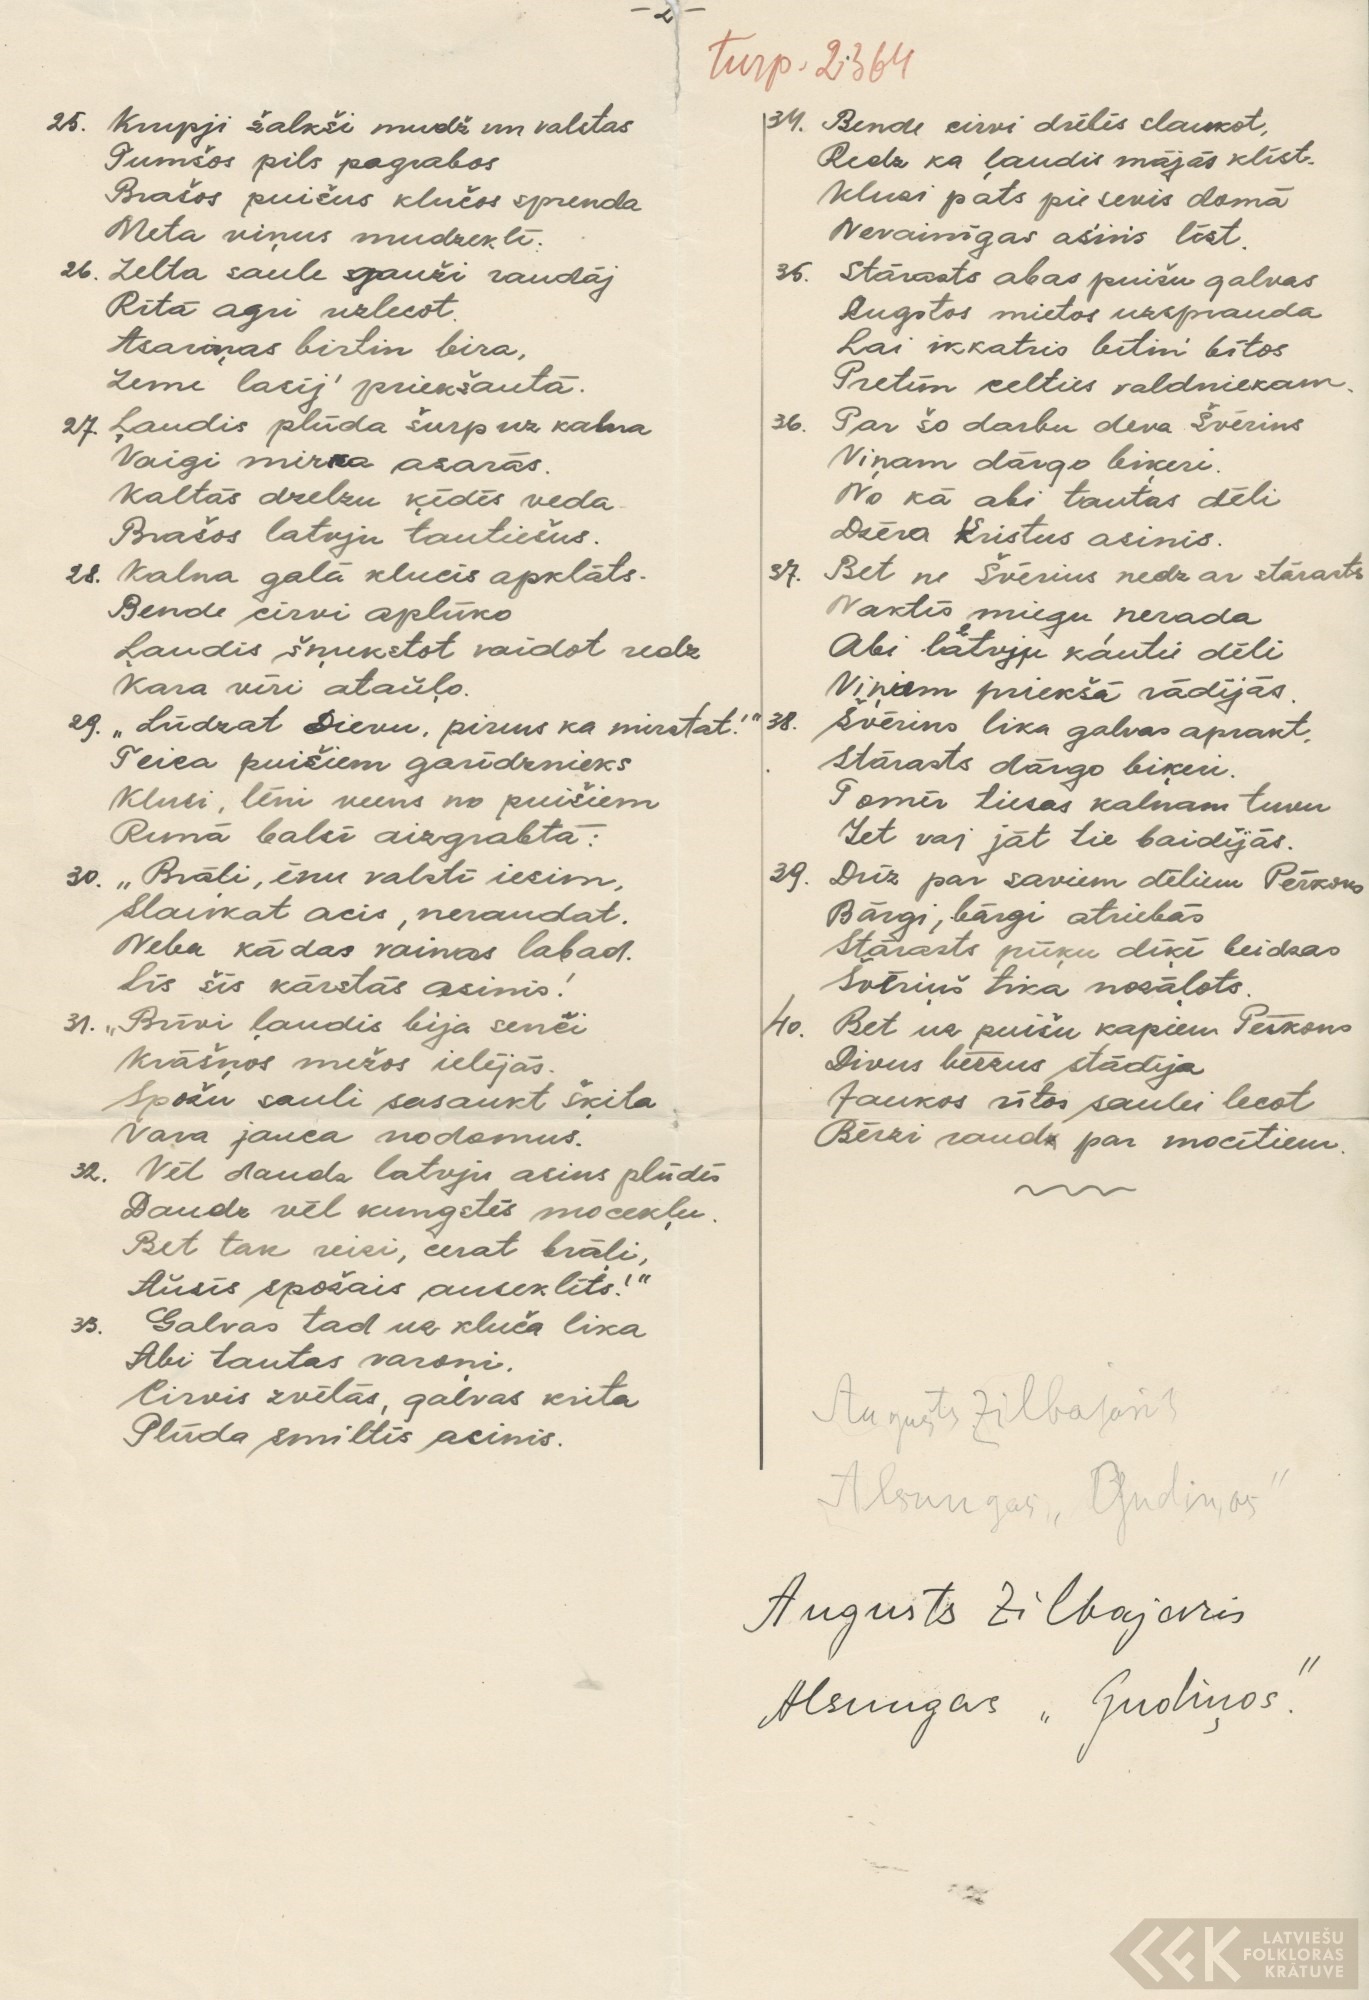 - 2 -
turp. 2364
25. Krupji žalkši mudž un valstas
Tumšos pils pagrabos
Brašos puišus klučos sprenda
Meta viņus mudžeklī.
26. Zelta saule gauži raudāj
Rītā agri uzlecot.
Asariņas birtin bira,
Zeme lasīj' priekšautā.
27. Ļaudis plūda šurp uz kalna
Vaigi mirka asarās.
Kaltās dzelzu ķēdēs veda
Brašos latvju tautiešus.
28. Kalna galā klucis apklāts.
Bende cirvi aplūko
Ļaudis šņukstot vaidot redz
Kara vīri ataūļo.
29. „Lūdzat Dievu, pirms ka mirstat!"
Teica puišiem garīdznieks
Klusi, lēni veens no puišiem
Runā balsī aizgrabtā:
30. „Brāļi, ēnu valstī iesim,
Slaukat acis, neraudat.
Nebz kādas vainas labad.
Līs šīs kārstās asinis!
31. „Brīvi ļaudis bija senči
Krāšņos mežos ielējās.
Spožu sauli sasaukt šķita
Vara jauca nodomus.
32. Vēl daudz latvju asins plūdīs
Daudz vēl kungstēs mocekļu.
Bet tak reizi, cerat brāļi,
Aūsīs spožais auseklīts!"
33. Galvas tad uz kluča lika
Abi tautas varoņi.
Cirvis zvēlās, galvas krita
Plūda smiltīs asinis.
34. Bende cirvi drēbēs slaukot,
Redz ka ļaudis mājās klīst.
Klusi pats pie sevis domā
Nevainīgas asinis līst.
35. Stārasts abas puišu galvas
Augstos mietos uzsprauda
Lai ikkatris bītin bītos
Pretīm celties valdniekam.
36. Par šo darbu deva Švērins
Viņam dārgo biķeri.
No kā abi tautas dēli
Dzēra Kristus asinis.
37. Bet ne Švērius nedz ar stārasts
Naktīs miegu nerada
Abi latvju kautie dēli
Viņiem priekšā rādījās.
38. Švērins lika galvas aprakt,
Stārasts dārgo biķeri.
Tomēr tiesas kalnam tuvu
Iet vaj jāt tie baidījās.
39. Drīz par saviem dēliem Pērkons
Bārgi, bārgi atriebās
Stārasts pūķu dīķī beidzas
Švēriņš tika nosāļots.
40. Bet uz puišu kapiem Pērkons
Divus bērzus stādīja
Jaukos rītos saulei lecot
Bērzi raudz par mocītiem.
Augusts Zilbajāris
Alsungas „Gudiņos"
Augusts Zilbajaris
Alsungas „Gudiņos".
LATVIEŠU
FOLKLORAS
KRĀTUVE